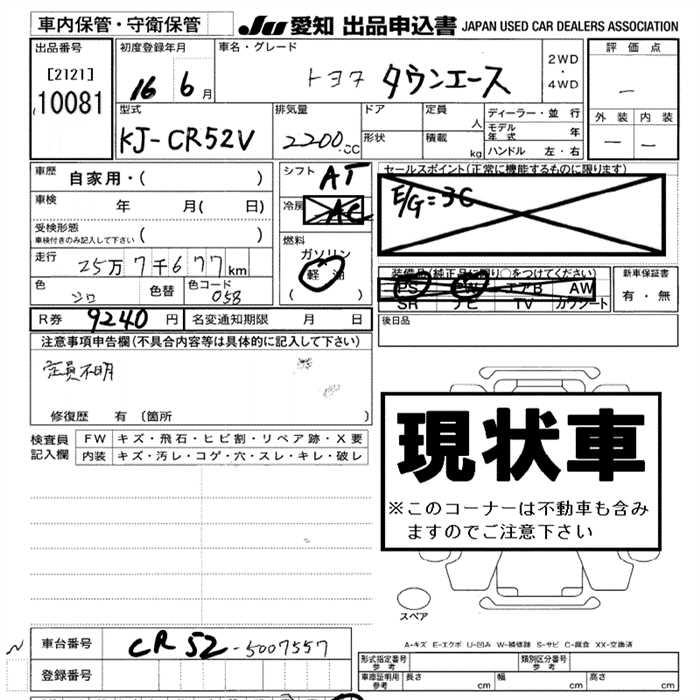 車内保管・守衛保管
JU 愛知 出品申込書 JAPAN USED CAR DEALERS ASSOCIATION
出品番号
[2121]
10081
初度登録年月
16 6 月
車名・グレード
トヨタ タウンエース
2WD
・
4WD
評価点
—
外装 内装
— —
型式
KJ-CR52V
排気量
2200 CC
ドア
形状
定員 人
積載 kg
ディーラー・並行
モデル年式 年
ハンドル 左・右
車歴 自家用・( )
車検 年 月( 日)
受検形態
車検付きのみ記入して下さい ( )
走行 25万7千677km
色 シロ 色替 色コード 058
シフト AT
冷房 AC
燃料
ガソリン
軽油
( )
セールスポイント(正常に機能するものに限ります)
E/G=3C
装備品(純正品に限り○をつけてください)
PS PW エアB AW
SR ナビ TV カワシート
新車保証書
有・無
R券 9240 円 名変通知期限 月 日
後日品
注意事項申告欄(不具合内容等は具体的に記入して下さい)
定員不明
修復歴 有 (箇所 )
検査員
記入欄
FW キズ・飛石・ヒビ割・リペア跡・X要
内装 キズ・汚レ・コゲ・穴・スレ・キレ・破レ
現状車
※このコーナーは不動車も含み
ますのでご注意下さい
スペア
A-キズ E-エクボ U-凹み W-補修跡 S-サビ C-腐食 XX-交換済
車台番号 CR52-5007557
登録番号
形式指定番号
参考
類別区分番号
参考
車庫証明用
参考
長さ cm 幅 cm 高さ cm